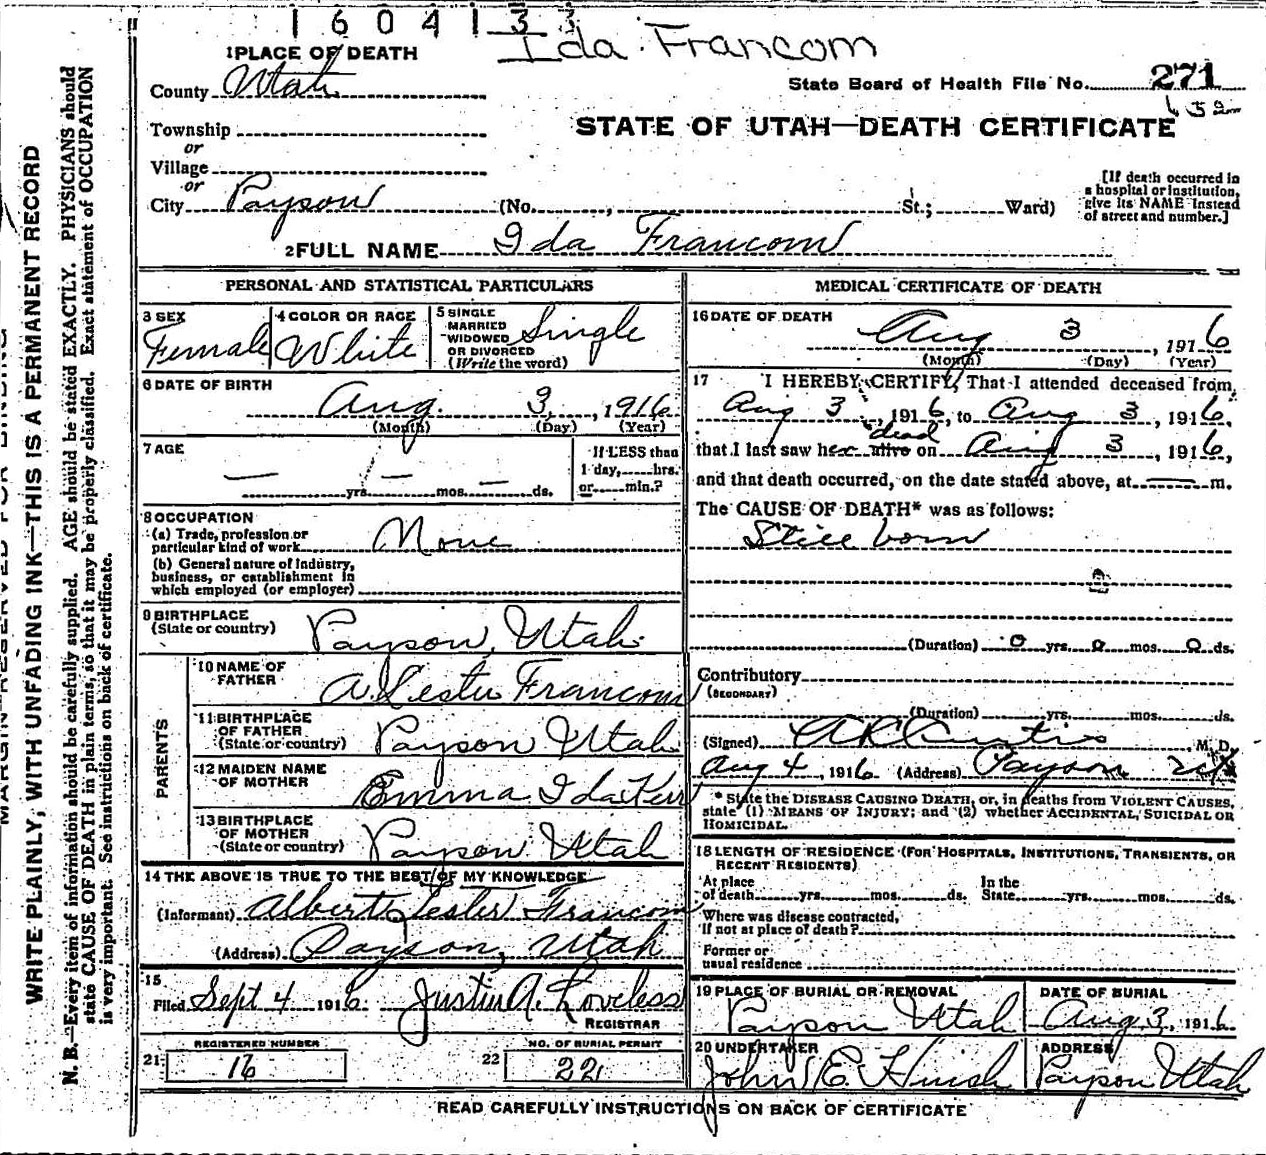 1604133
Ida Francom
1 PLACE OF DEATH
County Utah
State Board of Health File No. 271
132
Township
or
Village
or
City Payson (No. , St.; Ward)
STATE OF UTAH—DEATH CERTIFICATE
[If death occurred in
a hospital or institution,
give its NAME instead
of street and number.]
2 FULL NAME Ida Francom
PERSONAL AND STATISTICAL PARTICULARS
3 SEX
Female
4 COLOR OR RACE
White
5 SINGLE
MARRIED
WIDOWED
OR DIVORCED
(Write the word)
Single
6 DATE OF BIRTH
Aug. 3, 1916
(Month) (Day) (Year)
7 AGE
— — —
yrs. mos. ds.
If LESS than
1 day, hrs.
or min.?
8 OCCUPATION
(a) Trade, profession or
particular kind of work None
(b) General nature of industry,
business, or establishment in
which employed (or employer)
9 BIRTHPLACE
(State or country) Payson, Utah
PARENTS
10 NAME OF
FATHER A. Lester Francom
11 BIRTHPLACE
OF FATHER
(State or country) Payson Utah
12 MAIDEN NAME
OF MOTHER Emma Ida Kerr
13 BIRTHPLACE
OF MOTHER
(State or country) Payson Utah
14 THE ABOVE IS TRUE TO THE BEST OF MY KNOWLEDGE
(Informant) Albert Lester Francom
(Address) Payson, Utah
15
Filed Sept 4 1916 Justin A. Loveless
REGISTRAR
REGISTERED NUMBER
21 16
NO. OF BURIAL PERMIT
22 22
MEDICAL CERTIFICATE OF DEATH
16 DATE OF DEATH
Aug 3, 1916
(Month) (Day) (Year)
17 I HEREBY CERTIFY, That I attended deceased from
Aug 3, 1916, to Aug 3, 1916,
dead
that I last saw her alive on Aug 3, 1916,
and that death occurred, on the date stated above, at — m.
The CAUSE OF DEATH* was as follows:
Still born
(Duration) 0 yrs. 0 mos. 0 ds.
Contributory
(SECONDARY)
(Duration) yrs. mos. ds.
(Signed) A R Curtis, M. D.
Aug 4, 1916 (Address) Payson Utah
* State the DISEASE CAUSING DEATH, or, in deaths from VIOLENT CAUSES,
state (1) MEANS OF INJURY; and (2) whether ACCIDENTAL, SUICIDAL OR
HOMICIDAL.
18 LENGTH OF RESIDENCE (FOR HOSPITALS, INSTITUTIONS, TRANSIENTS, OR
RECENT RESIDENTS)
At place
of death yrs. mos. ds.
In the
State yrs. mos. ds.
Where was disease contracted,
If not at place of death?
Former or
usual residence
19 PLACE OF BURIAL OR REMOVAL
Payson Utah
DATE OF BURIAL
Aug 3, 1916
20 UNDERTAKER
John E. Huish
ADDRESS
Payson Utah
READ CAREFULLY INSTRUCTIONS ON BACK OF CERTIFICATE
MARGIN RESERVED FOR BINDING
WRITE PLAINLY, WITH UNFADING INK—THIS IS A PERMANENT RECORD
N. B.—Every item of information should be carefully supplied. AGE should be stated EXACTLY. PHYSICIANS should
state CAUSE OF DEATH in plain terms, so that it may be properly classified. Exact statement of OCCUPATION
is very important. See instructions on back of certificate.